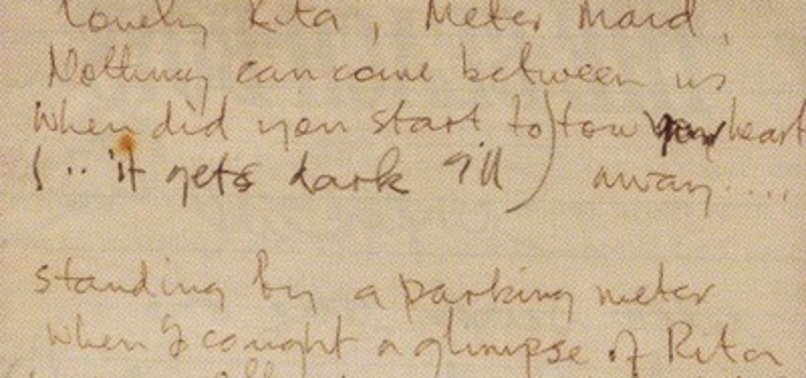 Lovely Rita, Meter Maid,
Nothing can come between us
When did you start to) tow your heart
(.. it gets dark I'll) away....
standing by a parking meter
when I caught a glimpse of Rita